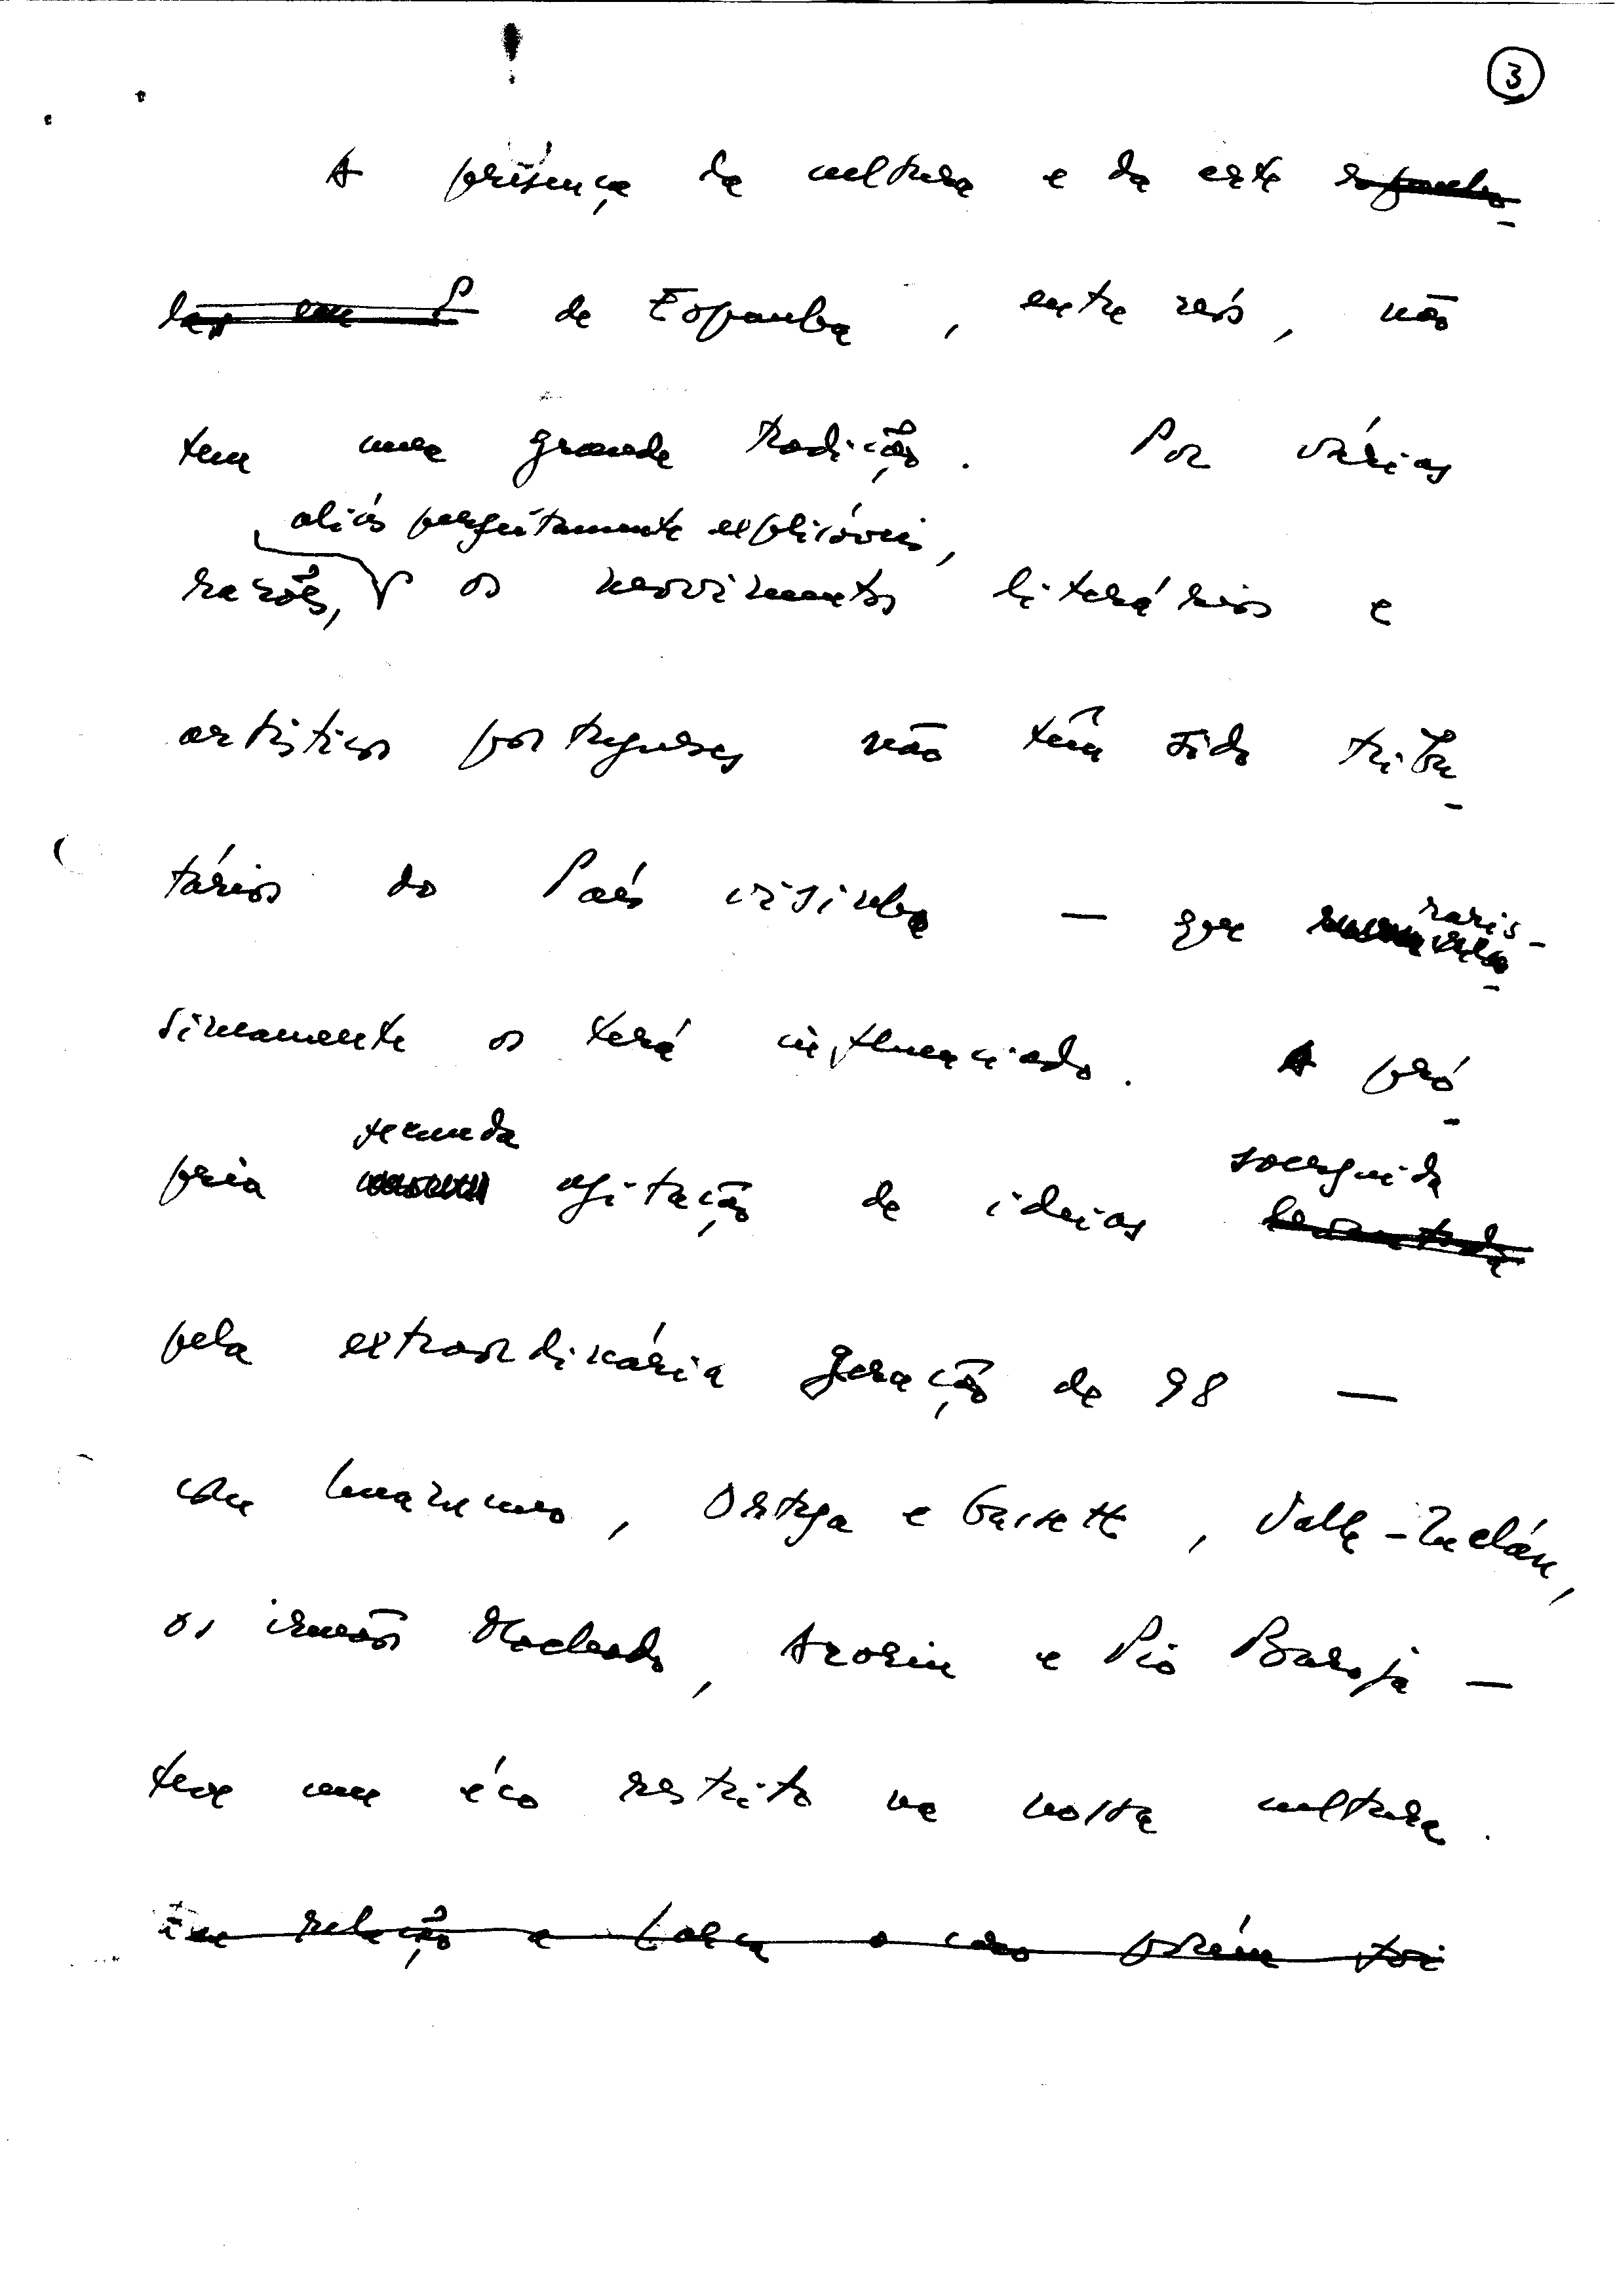 3
A presença da cultura e da arte espanho-
las em P de Espanha, entre nós, não
tem uma grande tradição. Por várias
aliás perfeitamente explicáveis,
razões, os movimentos literários e
artísticos portugueses não têm sido tribu-
tários do País visinho — que
raris-
simamente os terá influenciado. A pró-
fecunda
pria agitação de ideias
soerguida
levantada
pela extraordinária geração de 98 —
com Unamuno, Ortega e Gassett, Valle-Inclán,
os irmãos Machado, Azorin e Pio Baroja —
teve um éco restrito na nossa cultura.
Em relação a Lorca o caso porém foi